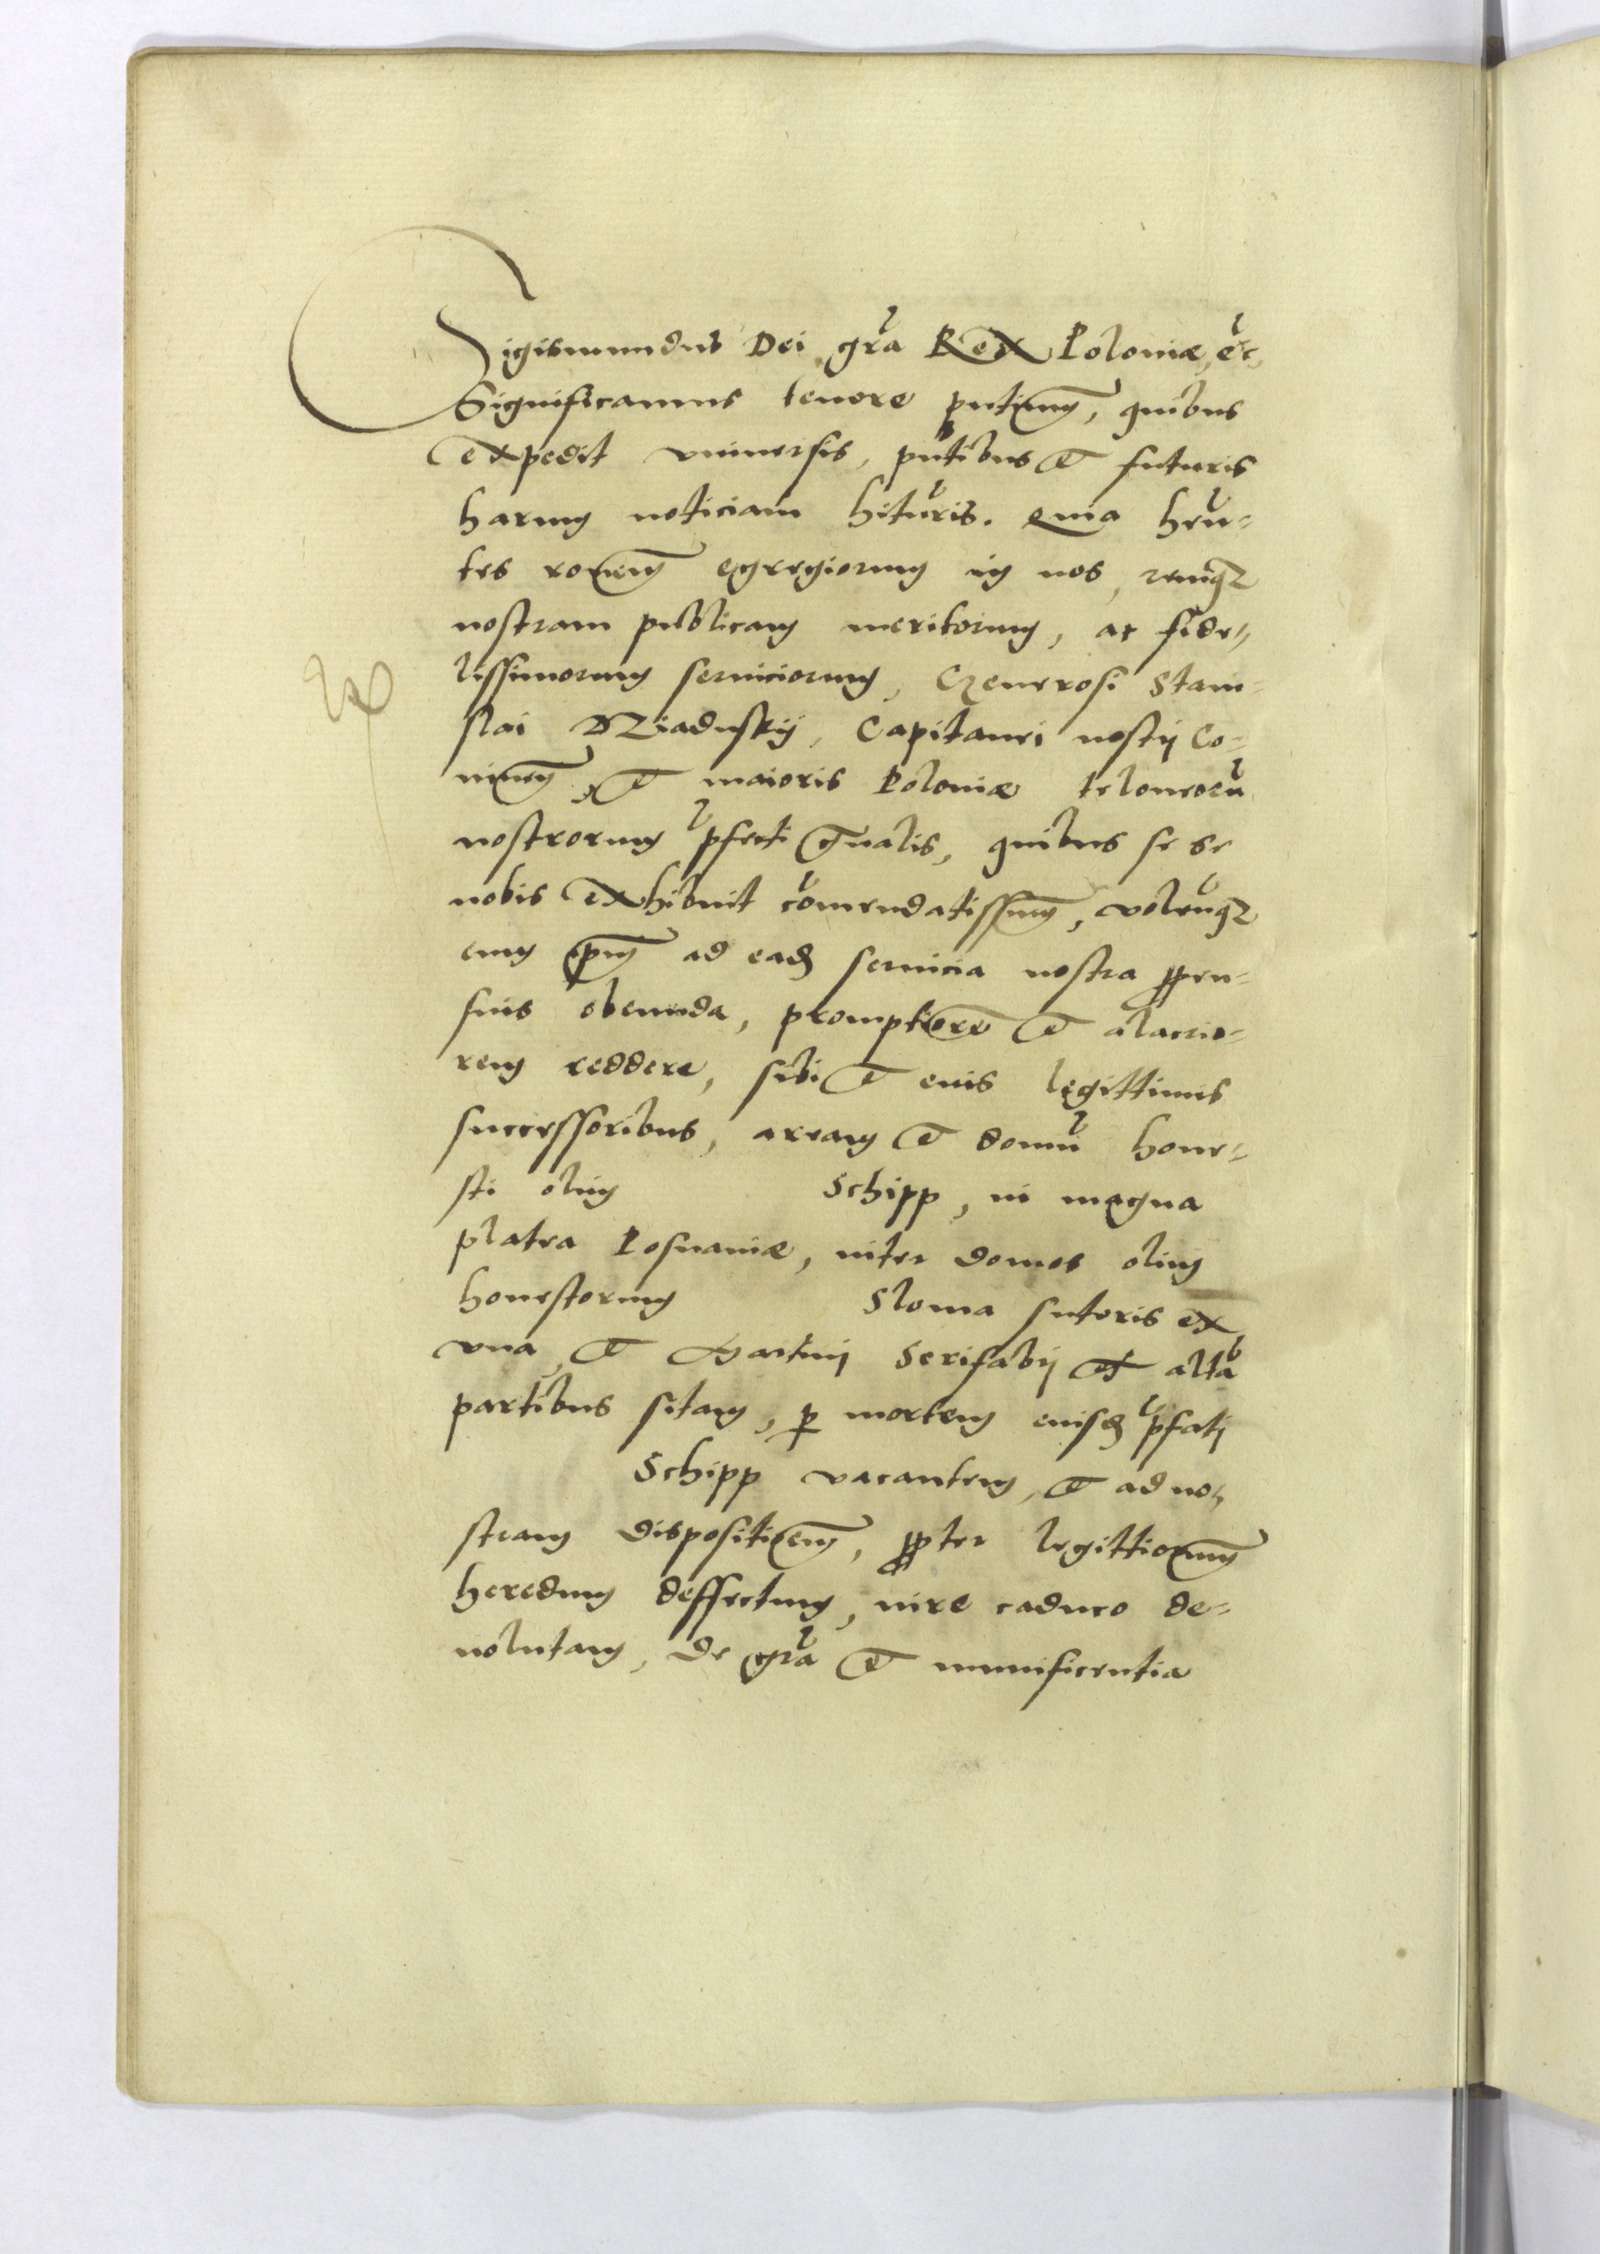 Sigismundus Dei gra Rex Poloniæ, etc
Significamus tenore pntium, quibus
expedit vniuersis, pntibus et futuris
harum noticiam hituris. Quia hen-
tes ronem egregiorum in nos, remqz
nostram publicam meritorum, ac fide-
lissimorum seruiciorum, Generosi Stani-
slai, Capitanei nostrj Co-
ninen, et maioris Poloniæ teloneoru
nostrorum pfecti gnalis, quibus se se
nobis exhibuit comendatissimum, volenqz
eum ipsum ad ead seruicia nostra ppen-
sius obeunda, promptiorem et alacrio-
rem reddere, sibi et eius legittimis
successoribus, aream et domu hone-
sti olim Schipp, in magna
platea Posnaniæ, inter domos olim
honestorum Sloma sutoris ex
vna, et Martinj Serifabrj ex alta
partibus sitam, p mortem eiusd pfatj
Schipp vacantem, et ad no-
stram dispositionem, ppter legittimorum
heredum deffectum, iure caduco de-
uolutam, de gra et munificentia